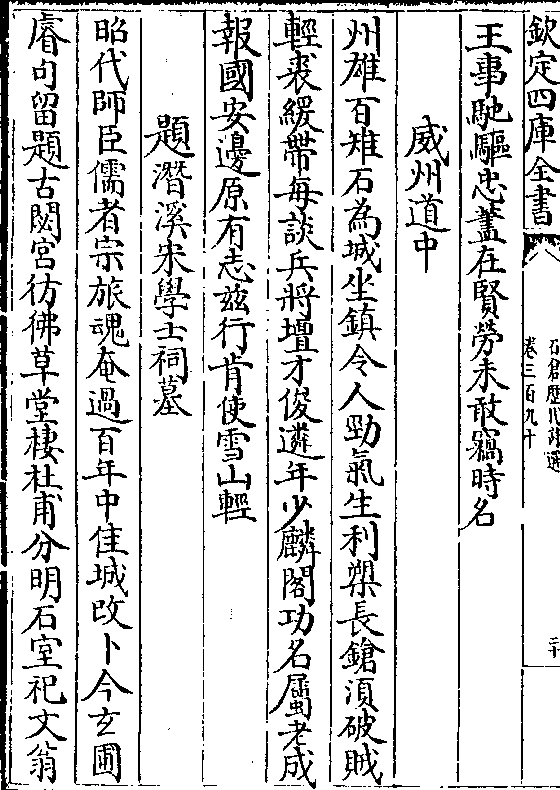 欽定四庫全書
石倉歷代詩選
卷三百九十
二十
王事馳驅忠藎在賢勞未敢竊時名
威州道中
州雄百雉石為城坐鎮令人勁氣生利槊長鎗湏破賊
輕裘緩帶每談兵將壇才俊遴年少麟閣功名屬老成
報國安邊原有志茲行肯使雪山輕
題潛溪宋學士祠墓
昭代師臣儒者宗旅魂奄過百年中佳城改卜今玄圃
睿句留題古閟宮彷彿草堂棲杜甫分明石室祀文翁